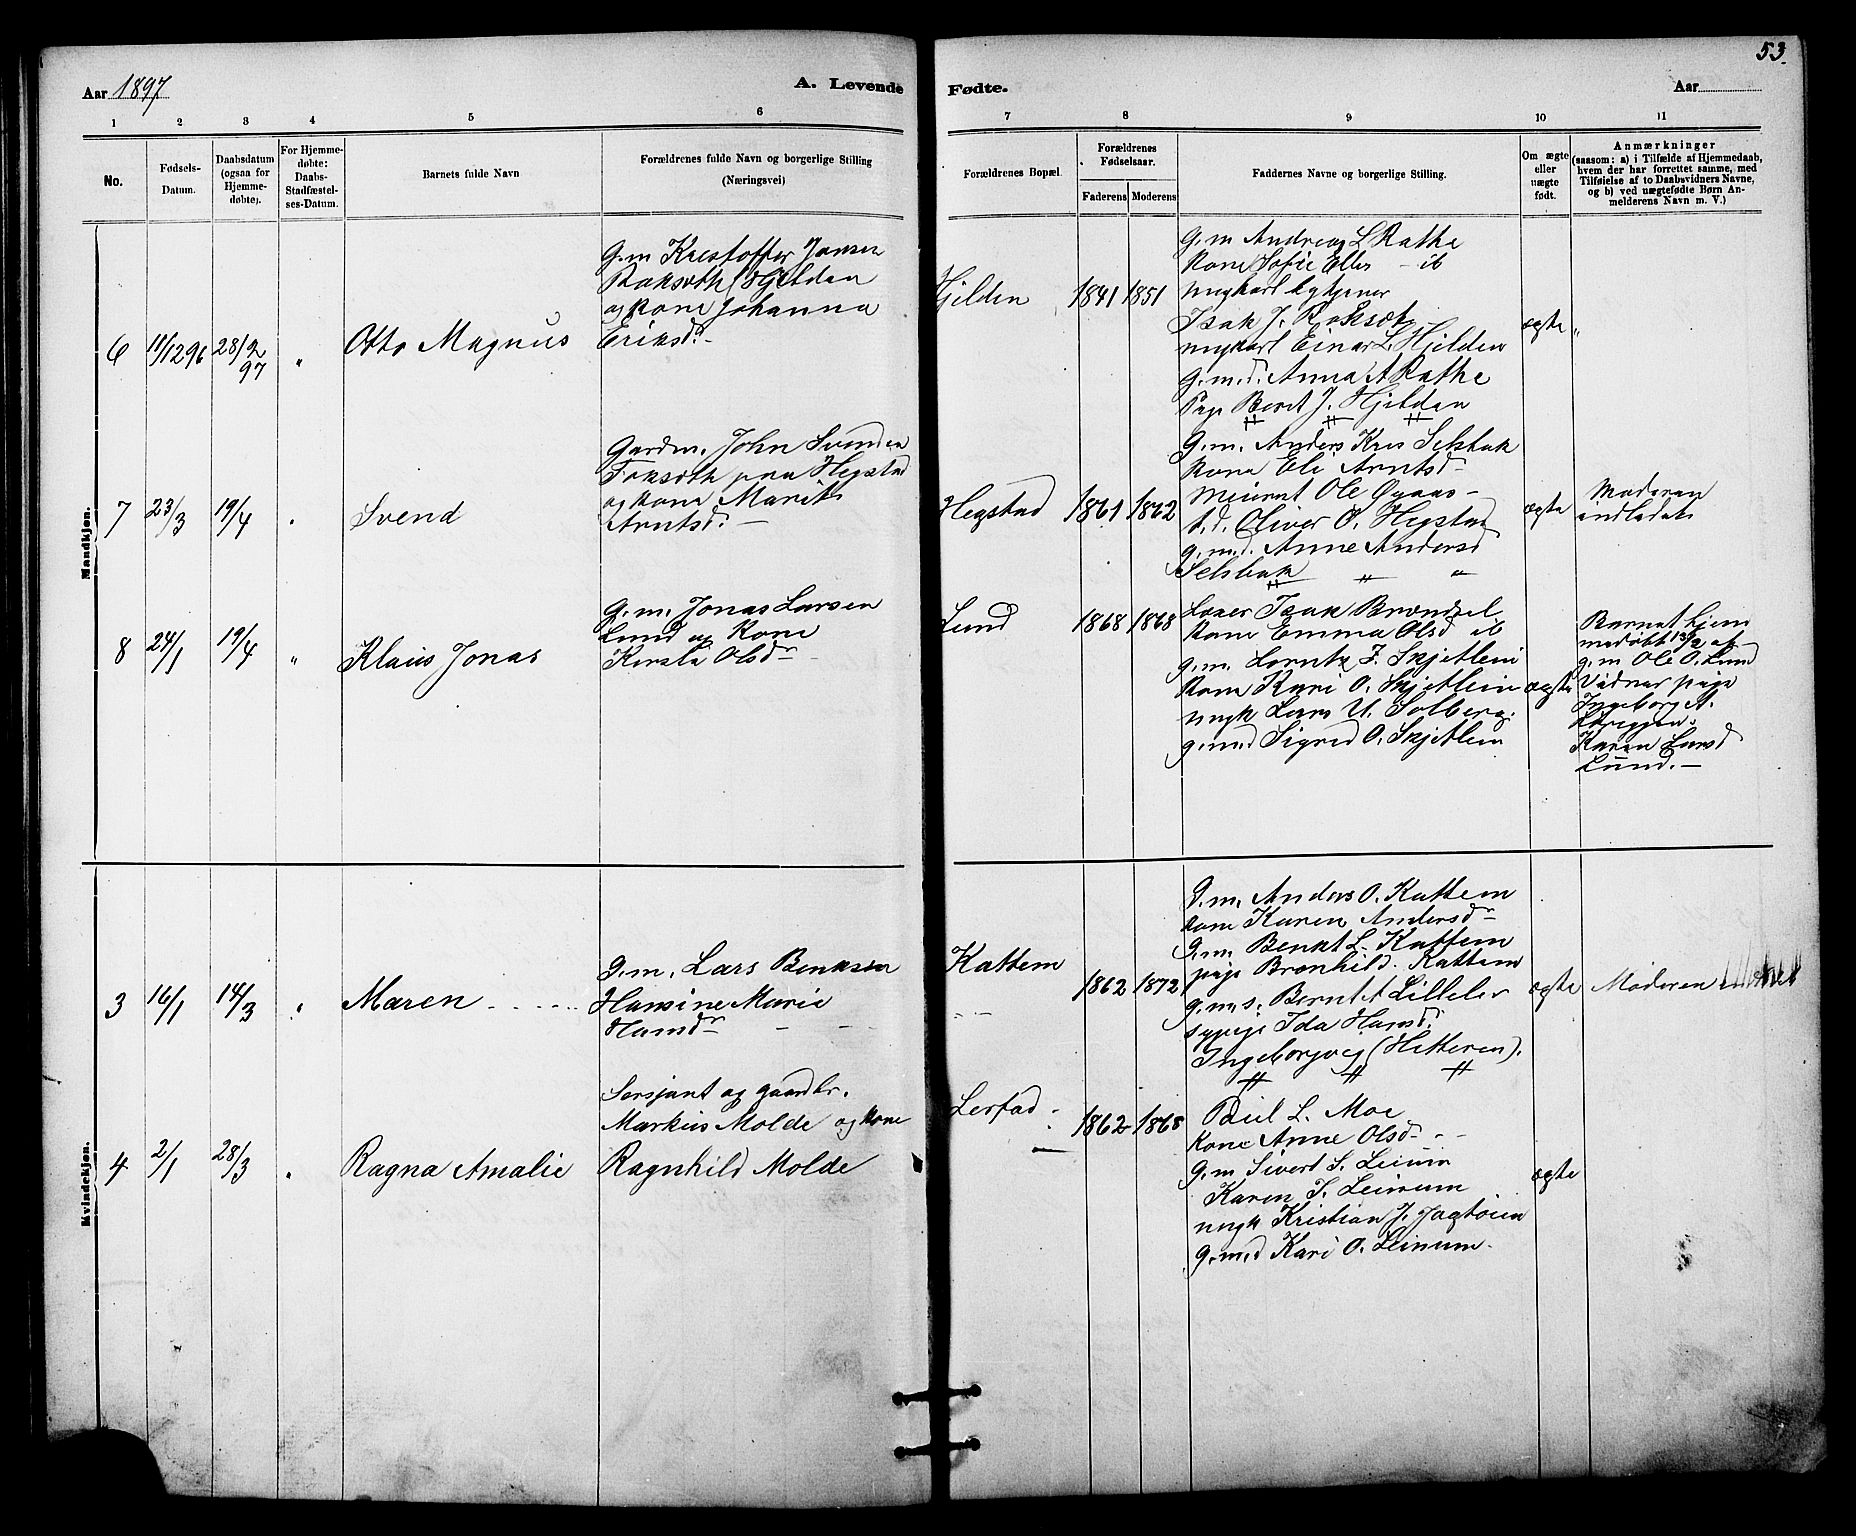 53.
Aar 1897
A. Levende
Fødte.
Aar
1 2 3 4 5 6
7 8 9 10 11
No.
Fødsels-
Datum.
Daabsdatum
(ogsaa for
Hjemme-
døbte).
For Hjemme-
døbte:
Daabs-
Stadfæstel-
ses-Datum.
Barnets fulde Navn
Forældrenes fulde Navn og borgerlige Stilling
(Næringsvei)
Forældrenes Bopæl.
Forældrenes
Fødselsaar.
Faderens
Moderens
Faddernes Navne og borgerlige Stilling.
Om ægte
eller
uægte
født.
Anmærkninger
(saasom: a) i Tilfælde af Hjemmedaab,
hvem der har forrettet samme, med
Tilføielse af to Daabsvidners Navne,
og b) ved uægtefødte Børn An-
melderens Navn m. V.)
Mandkjøn.
6
11/12 96
28/2
97
"
Otto Magnus
G.m Kristoffer Jonsen
Hjelden
og kone Johanna
Eriksd.
Hjelden
1841
1851
G.m Andreas L Rathe
Kone Sofie Eller - ib
ungkarl
Isak J. Roksæt
ungkarl Einar L. Hjelden
g.m.d. Anna A Rathe
Pige Beret J. Hjelden
ægte
"
7
23/3
19/4
"
Svend
Gardm. John Svendsen
paa Hegstad
og kone Marit
Arntsd. -
Hegstad
1861
1862
G.m. Anders Kris Selsbak
Kone Eli Arntsd -
Ole Øyaas -
t.d. Oliver O. Hegstad
g.m.d. Anne Andersd
Selsbak " "
ægte
Moderen
indledet
8
24/1
19/4
"
Klaus Jonas
G.m. Jonas Larsen
Lund og Kone
Kirsti Olsdr
Lund
1868
1868
Isak Brændsel
Kone Emma Olsd ib
g.m. Lornts J. Skjetlein
Kone Kari O. Skjetlein
ungk Lars U. Solberg.
g.m.d Sigrid O. Skjetlein
ægte
Barnet hjem
medøbt 13/2 af
g.m Ole O. Lund
Vidner pige
Ingeborg A.
Karen Larsd
Lund. -
Kvindekjøn.
3
16/1
14/3
"
Maren
G.m. Lars Benksen
Hansine Marie
Hansdr - -
Kattem
1862
1872
G.m. Anders O. Kattem
Kone Karen Andersdr
G.m. Benkt L. Kattem
pige Brønhild. Kattem
g.m.s. Bernt A Lilleler
sypige Ida Hansd.
Ingeborgvig (Hitteren).
ægte
Moderen
4
2/1
28/3
"
Ragna Amalie
Sersjant og gaardbr.
Markus Molde og kone
Ragnhild Molde
Lerfad -
1862
1868
L. Moe
Kone Anne Olsd - -
G.m Sivert S. Leinum
Karen S. Leinum
ungk Kristian J. Jagtøien
g.m.d Kari O. Leinum.
ægte